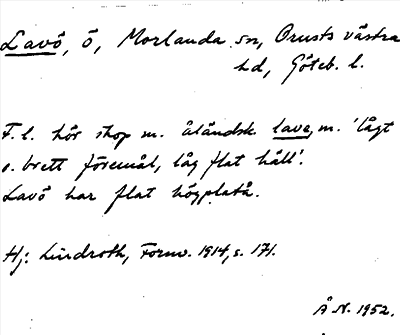 Lavö, ö, Morlanda sn, Orusts västra
hd, Göteb. l.
F. l. hör ihop m. åländsk lave, m. 'lågt
o. brett föremål, låg flat häll'.
Lavö har flat högplatå.
Hj. Lindroth, Fornv. 1914, s. 171.
Å N. 1952.